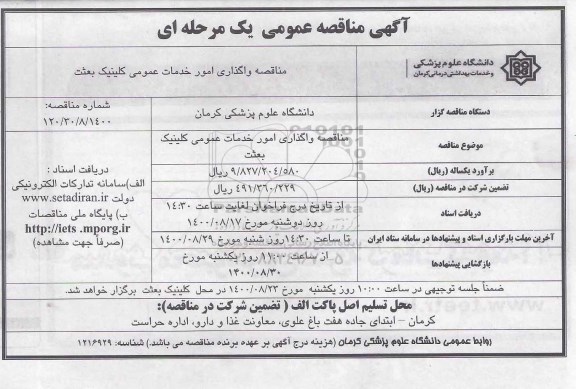 آگهی مناقصه عمومی یک مرحله ای
دانشگاه علوم پزشکی
و خدمات بهداشتی درمانی کرمان
مناقصه واگذاری امور خدمات عمومی کلینیک بعثت
دستگاه مناقصه گزار
دانشگاه علوم پزشکی کرمان
شماره مناقصه:
۱۲۰/۳۰/۸/۱۴۰۰
موضوع مناقصه
مناقصه واگذاری امور خدمات عمومی کلینیک
بعثت
برآورد یکساله (ریال)
۹/۸۲۷/۲۰۴/۵۸۰ ریال
تضمین شرکت در مناقصه (ریال)
۴۹۱/۳۶۰/۲۲۹ ریال
دریافت اسناد
از تاریخ درج فراخوان لغایت ساعت ۱۴:۳۰
روز دوشنبه مورخ ۱۴۰۰/۰۸/۱۷
آخرین مهلت بارگزاری اسناد و پیشنهادها در سامانه ستاد ایران
تا ساعت ۱۴:۳۰روز شنبه مورخ ۱۴۰۰/۰۸/۲۹
بازگشایی پیشنهادها
از ساعت ۱۱:۰۰ روز یکشنبه مورخ
۱۴۰۰/۰۸/۳۰
دریافت اسناد :
الف)سامانه تدارکات الکترونیکی
دولت www.setadiran.ir
ب) پایگاه ملی مناقصات
http://iets .mporg.ir
(صرفاً جهت مشاهده)
ضمناً جلسه توجیهی در ساعت ۱۰:۰۰ روز یکشنبه مورخ ۱۴۰۰/۰۸/۲۳ در محل کلینیک بعثت برگزار خواهد شد.
محل تسلیم اصل پاکت الف ( تضمین شرکت در مناقصه):
کرمان – ابتدای جاده هفت باغ علوی، معاونت غذا و دارو، اداره حراست
روابط عمومی دانشگاه علوم پزشکی کرمان (هزینه درج آگهی بر عهده برنده مناقصه می باشد.) شناسه: ۱۲۱۶۹۲۹